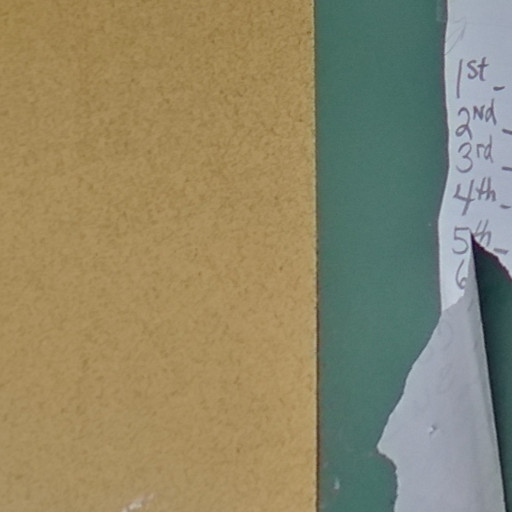 1st -
2nd -
3rd -
4th -
5th -
6